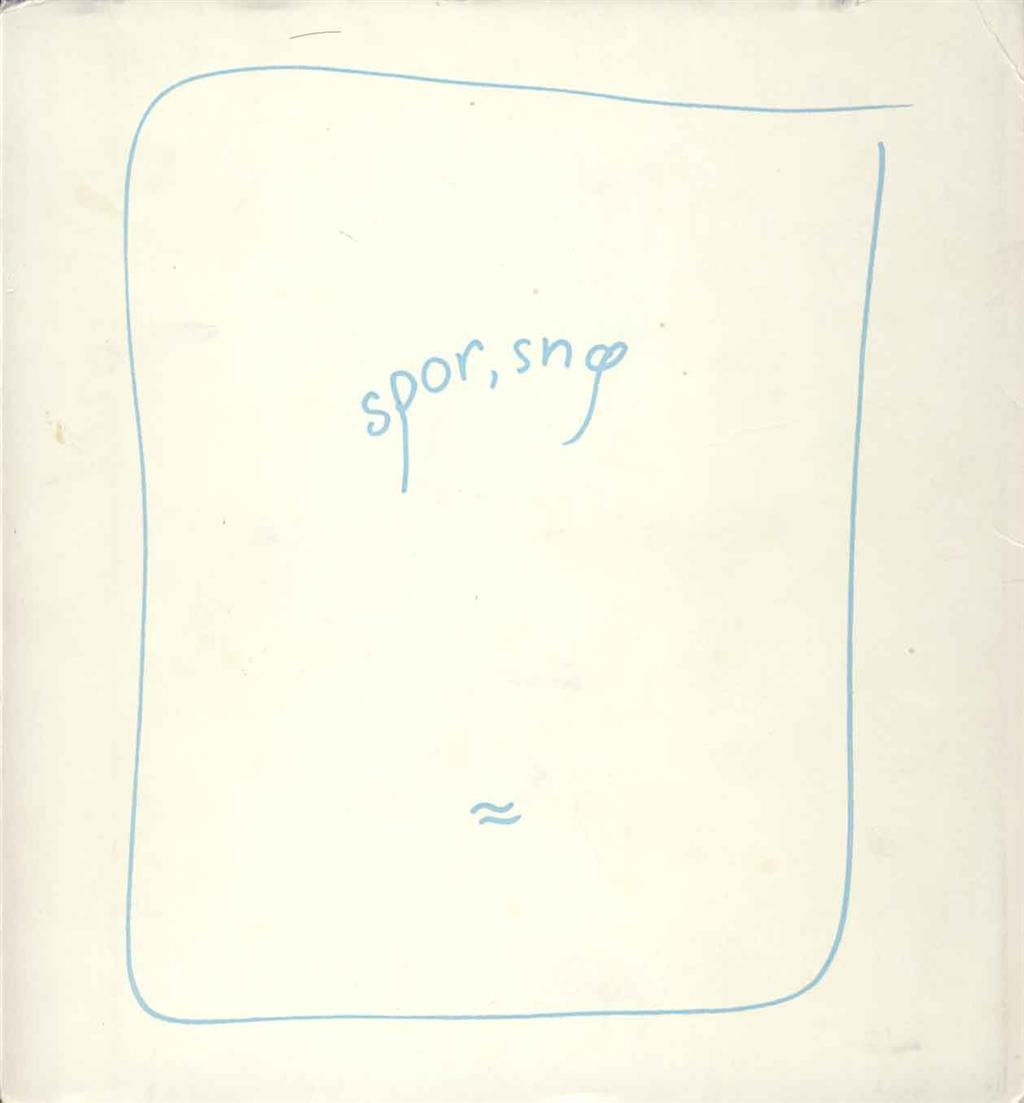 spor, snø
≈